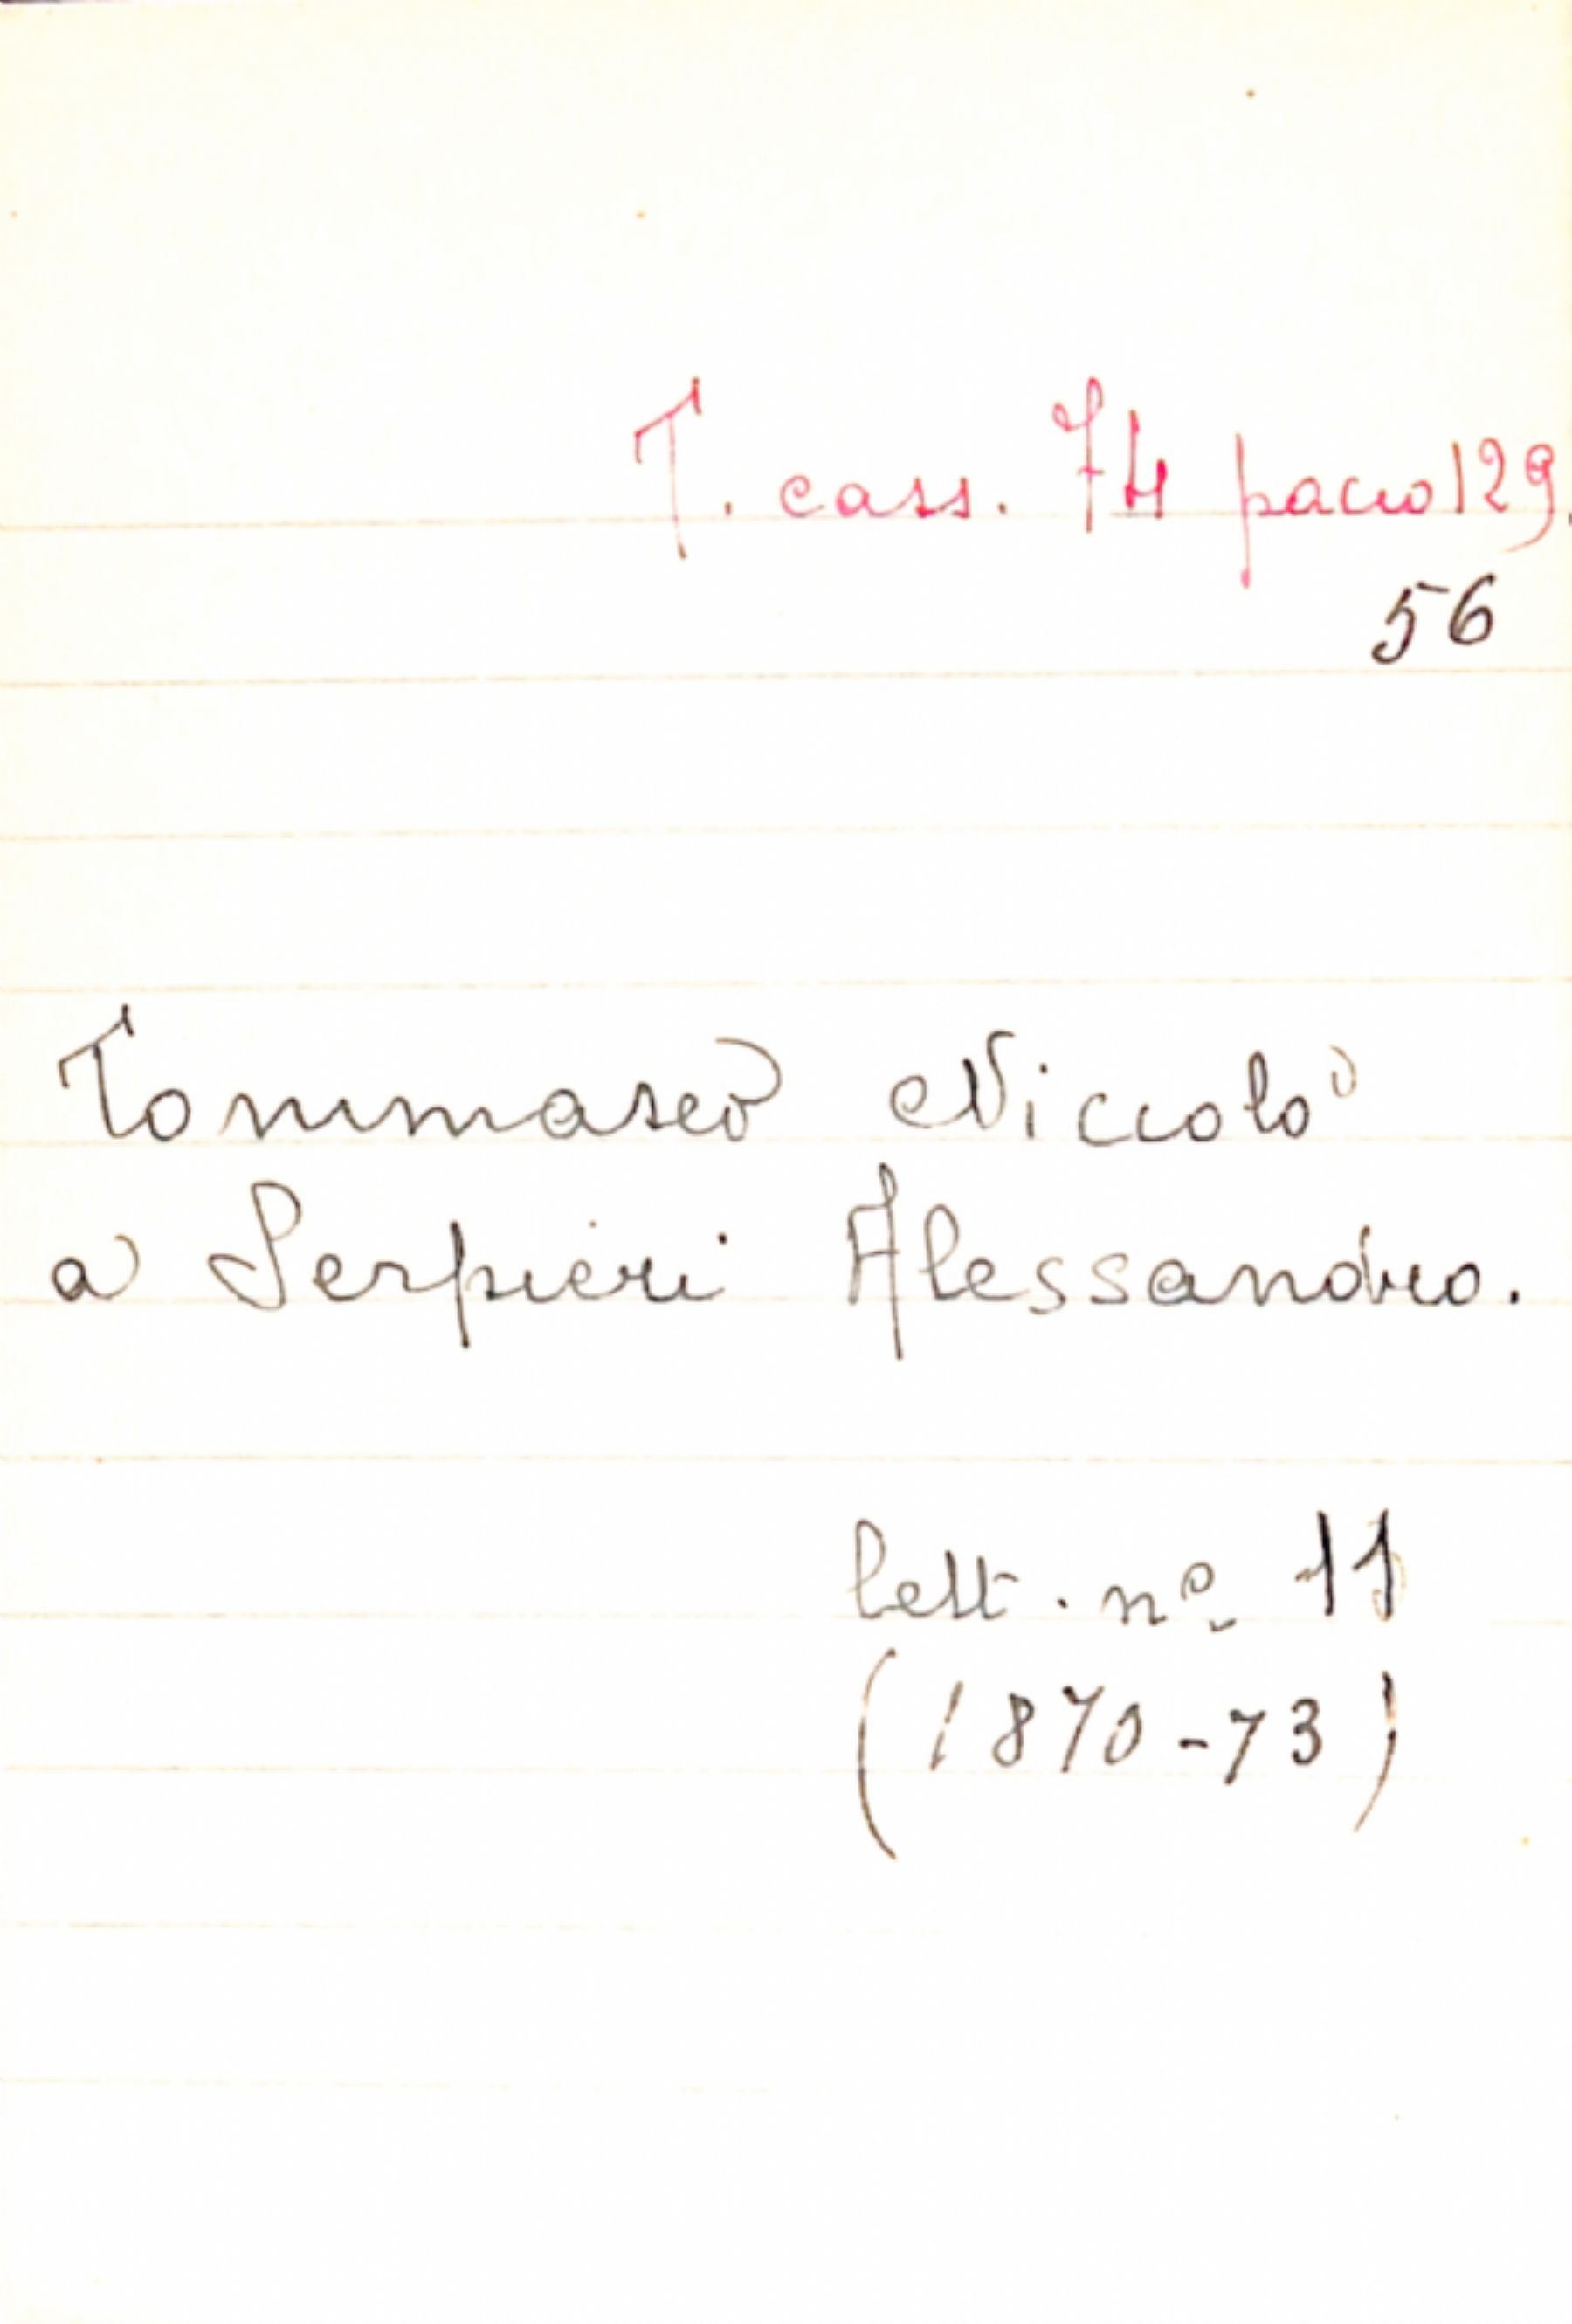 T. cass. 74 pacco 129.
56
Tommaseo Niccolò
a Serpieri Alessandro.
lett. nº 11
(1870-73)